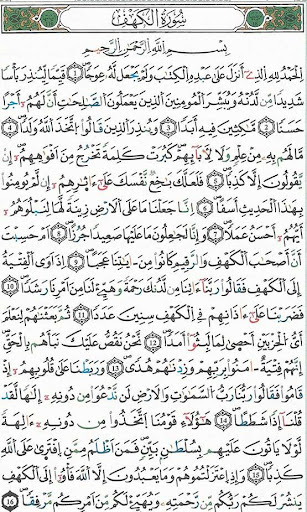 سُورَةُ الْكَهْفِ
بِسْمِ اللَّهِ الرَّحْمَٰنِ الرَّحِيمِ
اَلْحَمْدُ لِلَّهِ الَّذِي أَنزَلَ عَلَىٰ عَبْدِهِ الْكِتَٰبَ وَلَمْ يَجْعَل لَّهُ عِوَجًا ١ قَيِّمًا لِّيُنذِرَ بَأْسًا
شَدِيدًا مِّن لَّدُنْهُ وَيُبَشِّرَ الْمُومِنِينَ الَّذِينَ يَعْمَلُونَ الصَّٰلِحَٰتِ أَنَّ لَهُمُ أَجْرًا
حَسَنًا ٢ مَّٰكِثِينَ فِيهِ أَبَدًا ٣ وَيُنذِرَ الَّذِينَ قَالُوا اتَّخَذَ اللَّهُ وَلَدًا ٤
مَّا لَهُم بِهِ مِنْ عِلْمٍ وَلَا لِأَبَآئِهِمْ كَبُرَتْ كَلِمَةً تَخْرُجُ مِنْ أَفْوَٰهِهِمُ إِنْ
يَّقُولُونَ إِلَّا كَذِبًا ٥ فَلَعَلَّكَ بَٰخِعٌ نَّفْسَكَ عَلَىٰ ءَاثَٰرِهِمُ إِن لَّمْ يُومِنُوا
بِهَٰذَا الْحَدِيثِ أَسَفًا ٦ إِنَّا جَعَلْنَا مَا عَلَى الْأَرْضِ زِينَةً لَّهَا لِنَبْلُوَهُمُ
أَيُّهُمُ أَحْسَنُ عَمَلًا ٧ وَإِنَّا لَجَٰعِلُونَ مَا عَلَيْهَا صَعِيدًا جُرُزًا ٨ اَمْ حَسِبْتَ
أَنَّ أَصْحَٰبَ الْكَهْفِ وَالرَّقِيمِ كَانُوا مِنَ ـايَٰتِنَا عَجَبًا ٩ إِذَ اوَى الْفِتْيَةُ
إِلَى الْكَهْفِ فَقَالُوا رَبَّنَا ءَاتِنَا مِن لَّدُنكَ رَحْمَةً وَهَيِّئْ لَنَا مِنَ أَمْرِنَا رَشَدًا ١٠
فَضَرَبْنَا عَلَىٰ ءَاذَانِهِمْ فِي الْكَهْفِ سِنِينَ عَدَدًا ١١ ثُمَّ بَعَثْنَٰهُمْ لِنَعْلَمَ
أَيُّ الْحِزْبَيْنِ أَحْصَىٰ لِمَا لَبِثُوا أَمَدًا ١٢ نَّحْنُ نَقُصُّ عَلَيْكَ نَبَأَهُم بِالْحَقِّ
إِنَّهُمْ فِتْيَةٌ ـامَنُوا بِرَبِّهِمْ وَزِدْنَٰهُمْ هُدًى ١٣ وَرَبَطْنَا عَلَىٰ قُلُوبِهِمُ إِذْ
قَامُوا فَقَالُوا رَبُّنَا رَبُّ السَّمَٰوَٰتِ وَالْأَرْضِ لَن نَّدْعُوَا مِن دُونِهِ إِلَٰهًا لَّقَدْ
قُلْنَا إِذًا شَطَطًا ١٤ هَٰٓؤُلَاءِ قَوْمُنَا اتَّخَذُوا مِن دُونِهِ ءَالِهَةً
لَّوْلَا يَاتُونَ عَلَيْهِم بِسُلْطَٰنٍ بَيِّنٍ فَمَنَ أَظْلَمُ مِمَّنِ افْتَرَىٰ عَلَى اللَّهِ
كَذِبًا ١٥ وَإِذِ اعْتَزَلْتُمُوهُمْ وَمَا يَعْبُدُونَ إِلَّا اللَّهَ فَأْوُوا إِلَى الْكَهْفِ
يَنشُرْ لَكُمْ رَبُّكُم مِّن رَّحْمَتِهِ وَيُهَيِّئْ لَكُم مِّنَ أَمْرِكُم مَّرْفِقًا ١٦